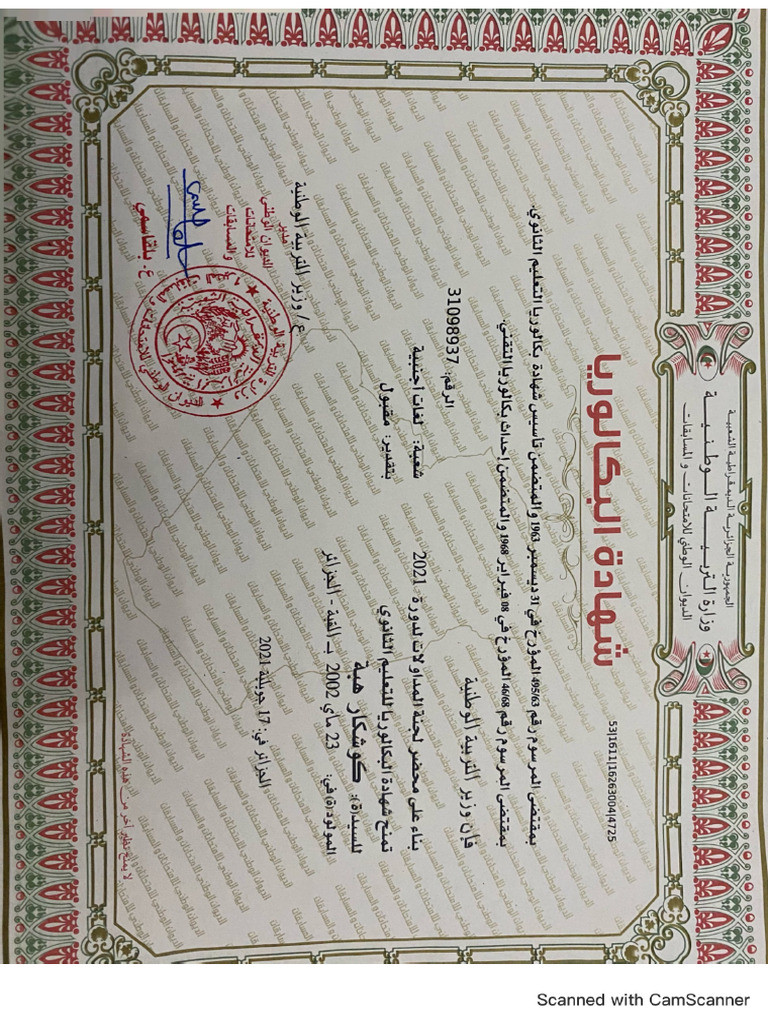 الجمهورية الجزائرية الديمقراطية الشعبية
وزارة التربية الوطنية
الديوان الوطني للامتحانات و المسابقات
53|1611|16263004|4725
شهادة البكالوريا
بمقتضى المرسوم رقم 495/63 المؤرخ في 31 ديسمبر 1963 والمتضمن تأسيس شهادة بكالوريا التعليم الثانوي.
بمقتضى المرسوم رقم 46/68 المؤرخ في 08 فبراير 1968 والمتضمن إحداث بكالوريا التقني.
فإن وزير التربية الوطنية
الرقم: 31098937
بناء على محضر لجنة المداولات لدورة 2021
شعبة: لغات أجنبية
تمنح شهادة البكالوريا للتعليم الثانوي
بتقدير: مقبول
للسيد(ة): كوشكار هبة
المولود(ة) في: 23 ماي 2002 بـ القبة - الجزائر
الجزائر في: 17 جويلية 2021
ع/ وزير التربية الوطنية
مدير
الديوان الوطني
للامتحانات
والمسابقات
ع. بلقاسمي
لا يمنح نظير آخر من هذه الشهادة
Scanned with CamScanner